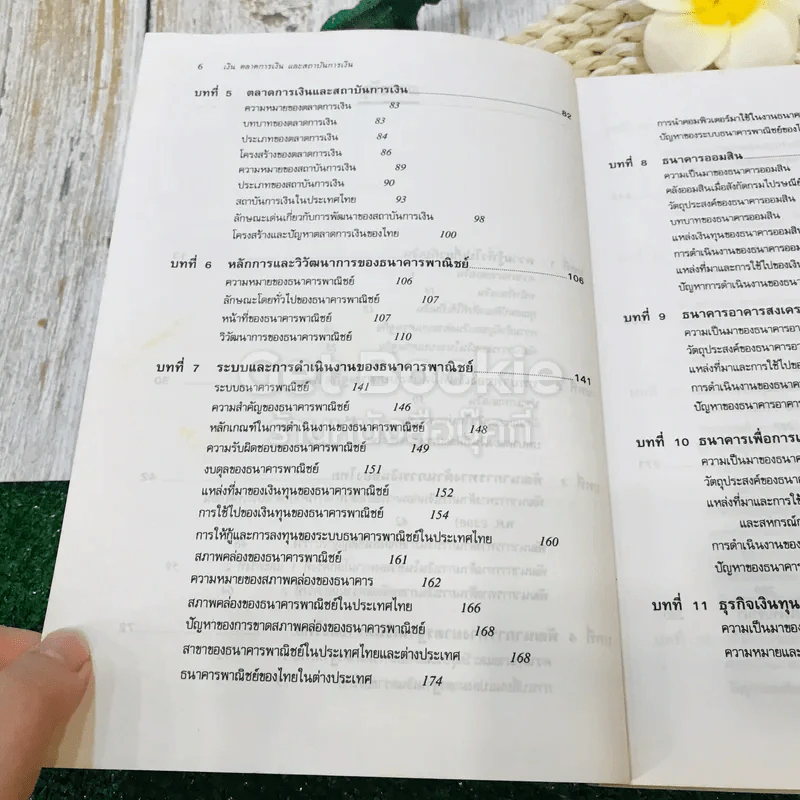 6 เงิน ตลาดการเงิน และสถาบันการเงิน
บทที่ 5 ตลาดการเงินและสถาบันการเงิน 82
ความหมายของตลาดการเงิน 83
บทบาทของตลาดการเงิน 83
ประเภทของตลาดการเงิน 84
โครงสร้างของตลาดการเงิน 86
ความหมายของสถาบันการเงิน 89
ประเภทของสถาบันการเงิน 90
สถาบันการเงินในประเทศไทย 93
ลักษณะเด่นเกี่ยวกับการพัฒนาของสถาบันการเงิน 98
โครงสร้างและปัญหาตลาดการเงินของไทย 100
บทที่ 6 หลักการและวิวัฒนาการของธนาคารพาณิชย์ 106
ความหมายของธนาคารพาณิชย์ 106
ลักษณะโดยทั่วไปของธนาคารพาณิชย์ 107
หน้าที่ของธนาคารพาณิชย์ 107
วิวัฒนาการของธนาคารพาณิชย์ 110
บทที่ 7 ระบบและการดำเนินงานของธนาคารพาณิชย์ 141
ระบบธนาคารพาณิชย์ 141
ความสำคัญของธนาคารพาณิชย์ 146
หลักเกณฑ์ในการดำเนินงานของธนาคารพาณิชย์ 148
ความรับผิดชอบของธนาคารพาณิชย์ 149
งบดุลของธนาคารพาณิชย์ 151
แหล่งที่มาของเงินทุนของธนาคารพาณิชย์ 152
การใช้ไปของเงินทุนของธนาคารพาณิชย์ 154
การให้กู้และการลงทุนของระบบธนาคารพาณิชย์ในประเทศไทย 160
สภาพคล่องของธนาคารพาณิชย์ 161
ความหมายของสภาพคล่องของธนาคาร 162
สภาพคล่องของธนาคารพาณิชย์ในประเทศไทย 166
ปัญหาของการขาดสภาพคล่องของธนาคารพาณิชย์ 168
สาขาของธนาคารพาณิชย์ในประเทศไทยและต่างประเทศ 168
ธนาคารพาณิชย์ของไทยในต่างประเทศ 174
การนำคอมพิวเตอร์มาใช้ในงานธนาค
ปัญหาของระบบธนาคารพาณิชย์ของไ
บทที่ 8 ธนาคารออมสิน
ความเป็นมาของธนาคารออมสิน
คลังออมสินเมื่อสังกัดกรมไปรษณีย์
วัตถุประสงค์ของธนาคารออมสิน
บทบาทของธนาคารออมสิน
แหล่งเงินทุนของธนาคารออมสิน
การดำเนินงานของธนาคารออม
แหล่งที่มาและการใช้ไปของเงิน
ปัญหาการดำเนินงานของธนา
บทที่ 9 ธนาคารอาคารสงเคร
ความเป็นมาของธนาคารอา
วัตถุประสงค์ของธนาคารอา
แหล่งที่มาและการใช้ไปขอ
การดำเนินงานของธนาคาร
ปัญหาของธนาคารอาคาร
บทที่ 10 ธนาคารเพื่อการเ
ความเป็นมาของธนาคาร
วัตถุประสงค์ของธนาคาร
แหล่งที่มาและการใช้
และสหกรณ์ก
การดำเนินงานของ
ปัญหาของธนาคาร
บทที่ 11 ธุรกิจเงินทุน
ความเป็นมาของ
ความหมายและ
Get Bookie
ร้านหนังสือบุ๊คกี้